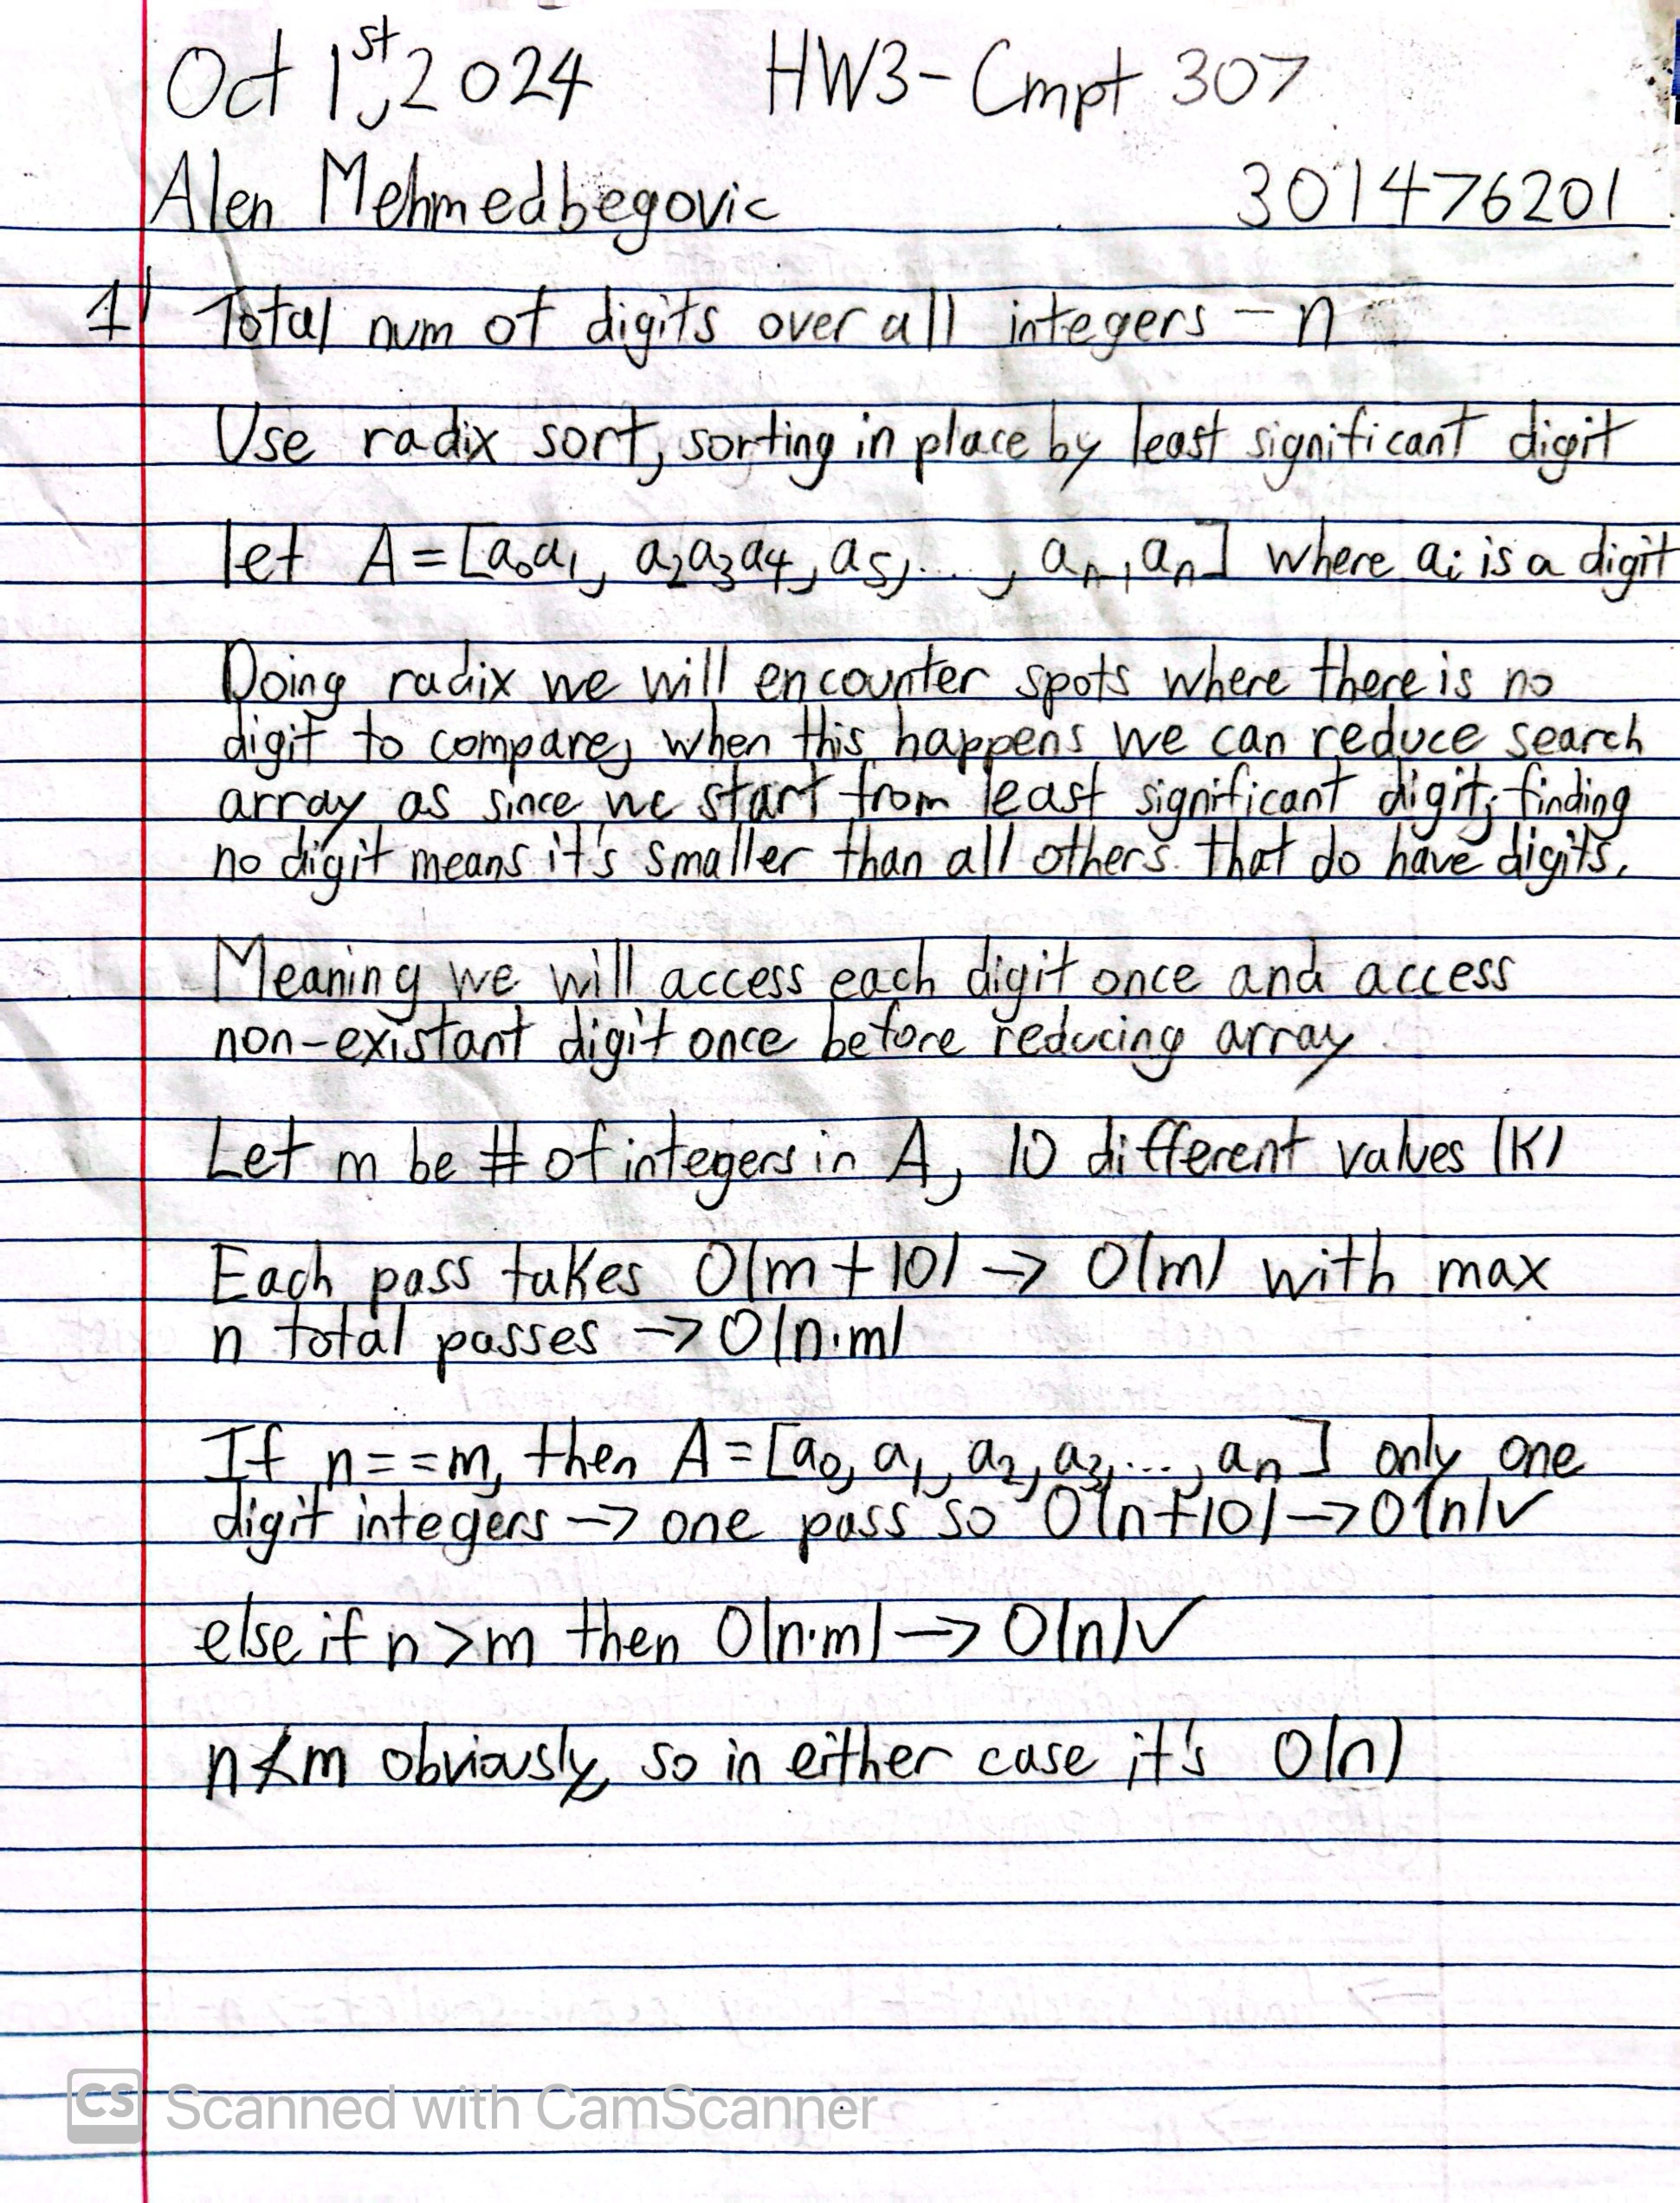 Oct 1st, 2024 HW3 - Cmpt 307
Alen Mehmedbegovic 301476201
1) Total num of digits over all integers - n
Use radix sort, sorting in place by least significant digit
let A = [a₀a₁, a₂a₃a₄, a₅, ..., aₙ₋₁aₙ] where aᵢ is a digit
Doing radix we will encounter spots where there is no
digit to compare, when this happens we can reduce search
array as since we start from least significant digit, finding
no digit means it's smaller than all others that do have digits.
Meaning we will access each digit once and access
non-existant digit once before reducing array
Let m be # of integers in A, 10 different values (K)
Each pass takes O(m + 10) → O(m) with max
n total passes → O(n·m)
If n == m, then A = [a₀, a₁, a₂, a₃, ..., aₙ] only one
digit integers → one pass so O(n+10) → O(n) ✓
else if n > m then O(n·m) → O(n) ✓
n ≮ m obviously, so in either case it's O(n)
CS Scanned with CamScanner